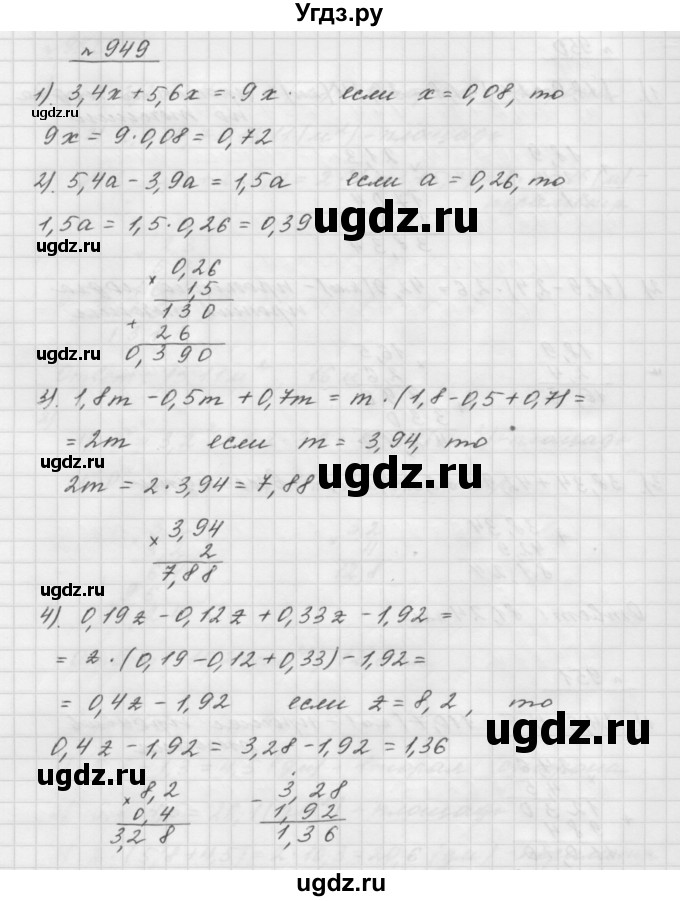 Угдз.ру
№ 949
1). 3,4x + 5,6x = 9x. если x = 0,08, то
ugdz.ru
9x = 9·0,08 = 0,72
2). 5,4a - 3,9a = 1,5a если a = 0,26, то
ugdz.ru
1,5a = 1,5·0,26 = 0,39
ugdz.ru
ugdz.ru
0,26
× 1,5
130
+ 26
0,390
ugdz.ru
3). 1,8m - 0,5m + 0,7m = m·(1,8-0,5+0,7)=
= 2m если m = 3,94, то
ugdz.ru
2m = 2·3,94 = 7,88
ugdz.ru
3,94
× 2
7,88
ugdz.ru
4). 0,19z - 0,12z + 0,33z - 1,92 =
= z·(0,19-0,12+0,33)-1,92=
ugdz.ru
= 0,4z - 1,92 если z = 8,2, то
ugdz.ru
0,4z - 1,92 = 3,28 - 1,92 = 1,36
ugdz.ru
× 8,2 - 3,28
0,4 1,92
3,28 1,36
ugdz.ru
ugdz.ru